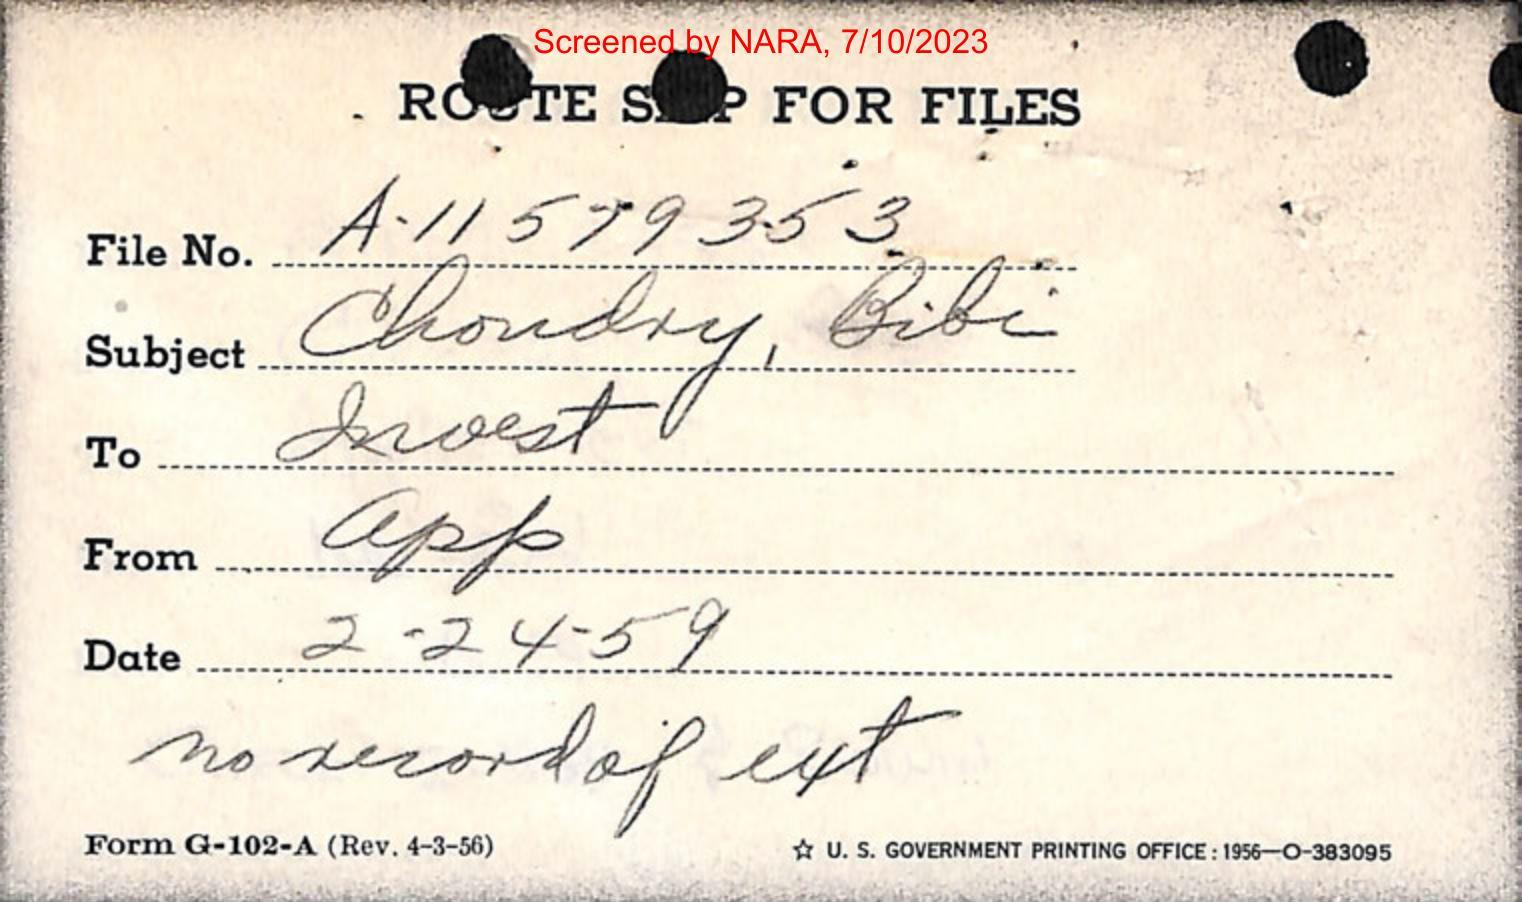 Screened by NARA, 7/10/2023
ROUTE SLIP FOR FILES
File No. A-11 579 353
Subject Choudry, Bibi
To Invest
From app
Date 2-24-59
no record of ext
Form G-102-A (Rev. 4-3-56)
☆ U. S. GOVERNMENT PRINTING OFFICE : 1956—O-383095